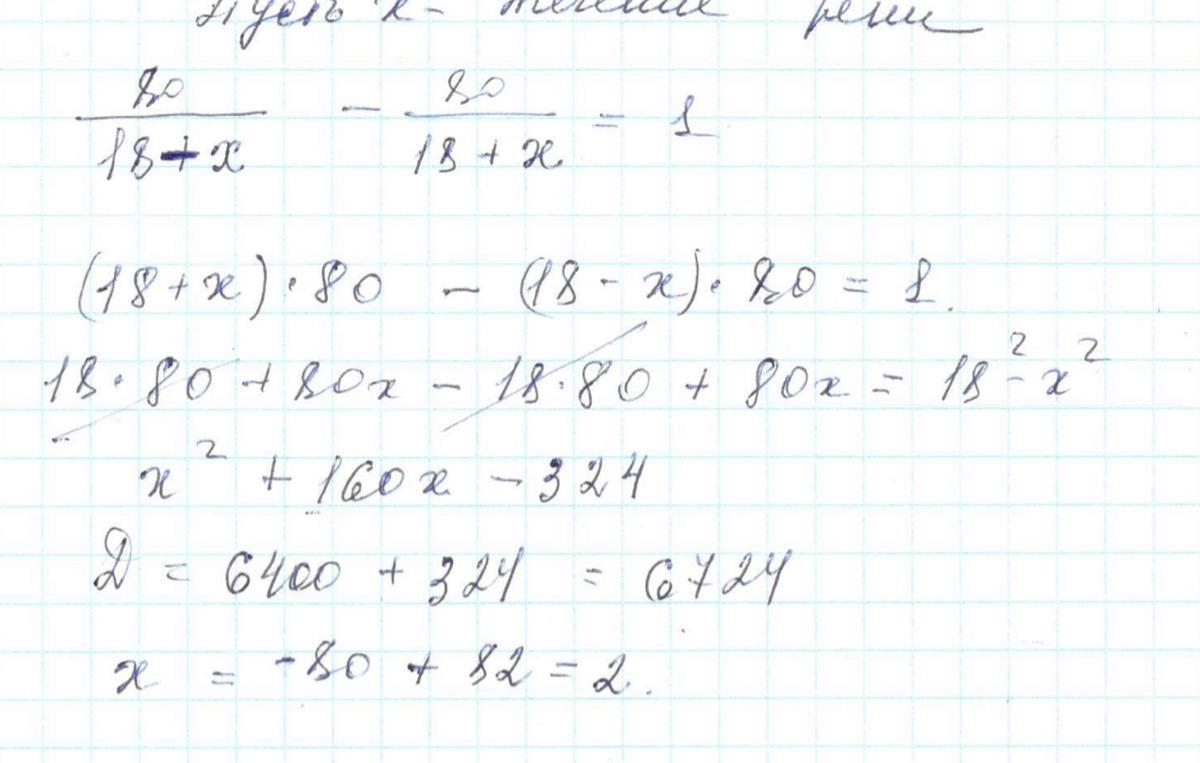 Пусть x - течение реки
80/(18+x) - 80/(18+x) = 1
(18+x)·80 - (18-x)·80 = 1.
18·80 + 80x - 18·80 + 80x = 18² - x²
x² + 160x - 324
D = 6400 + 324 = 6724
x = -80 + 82 = 2.